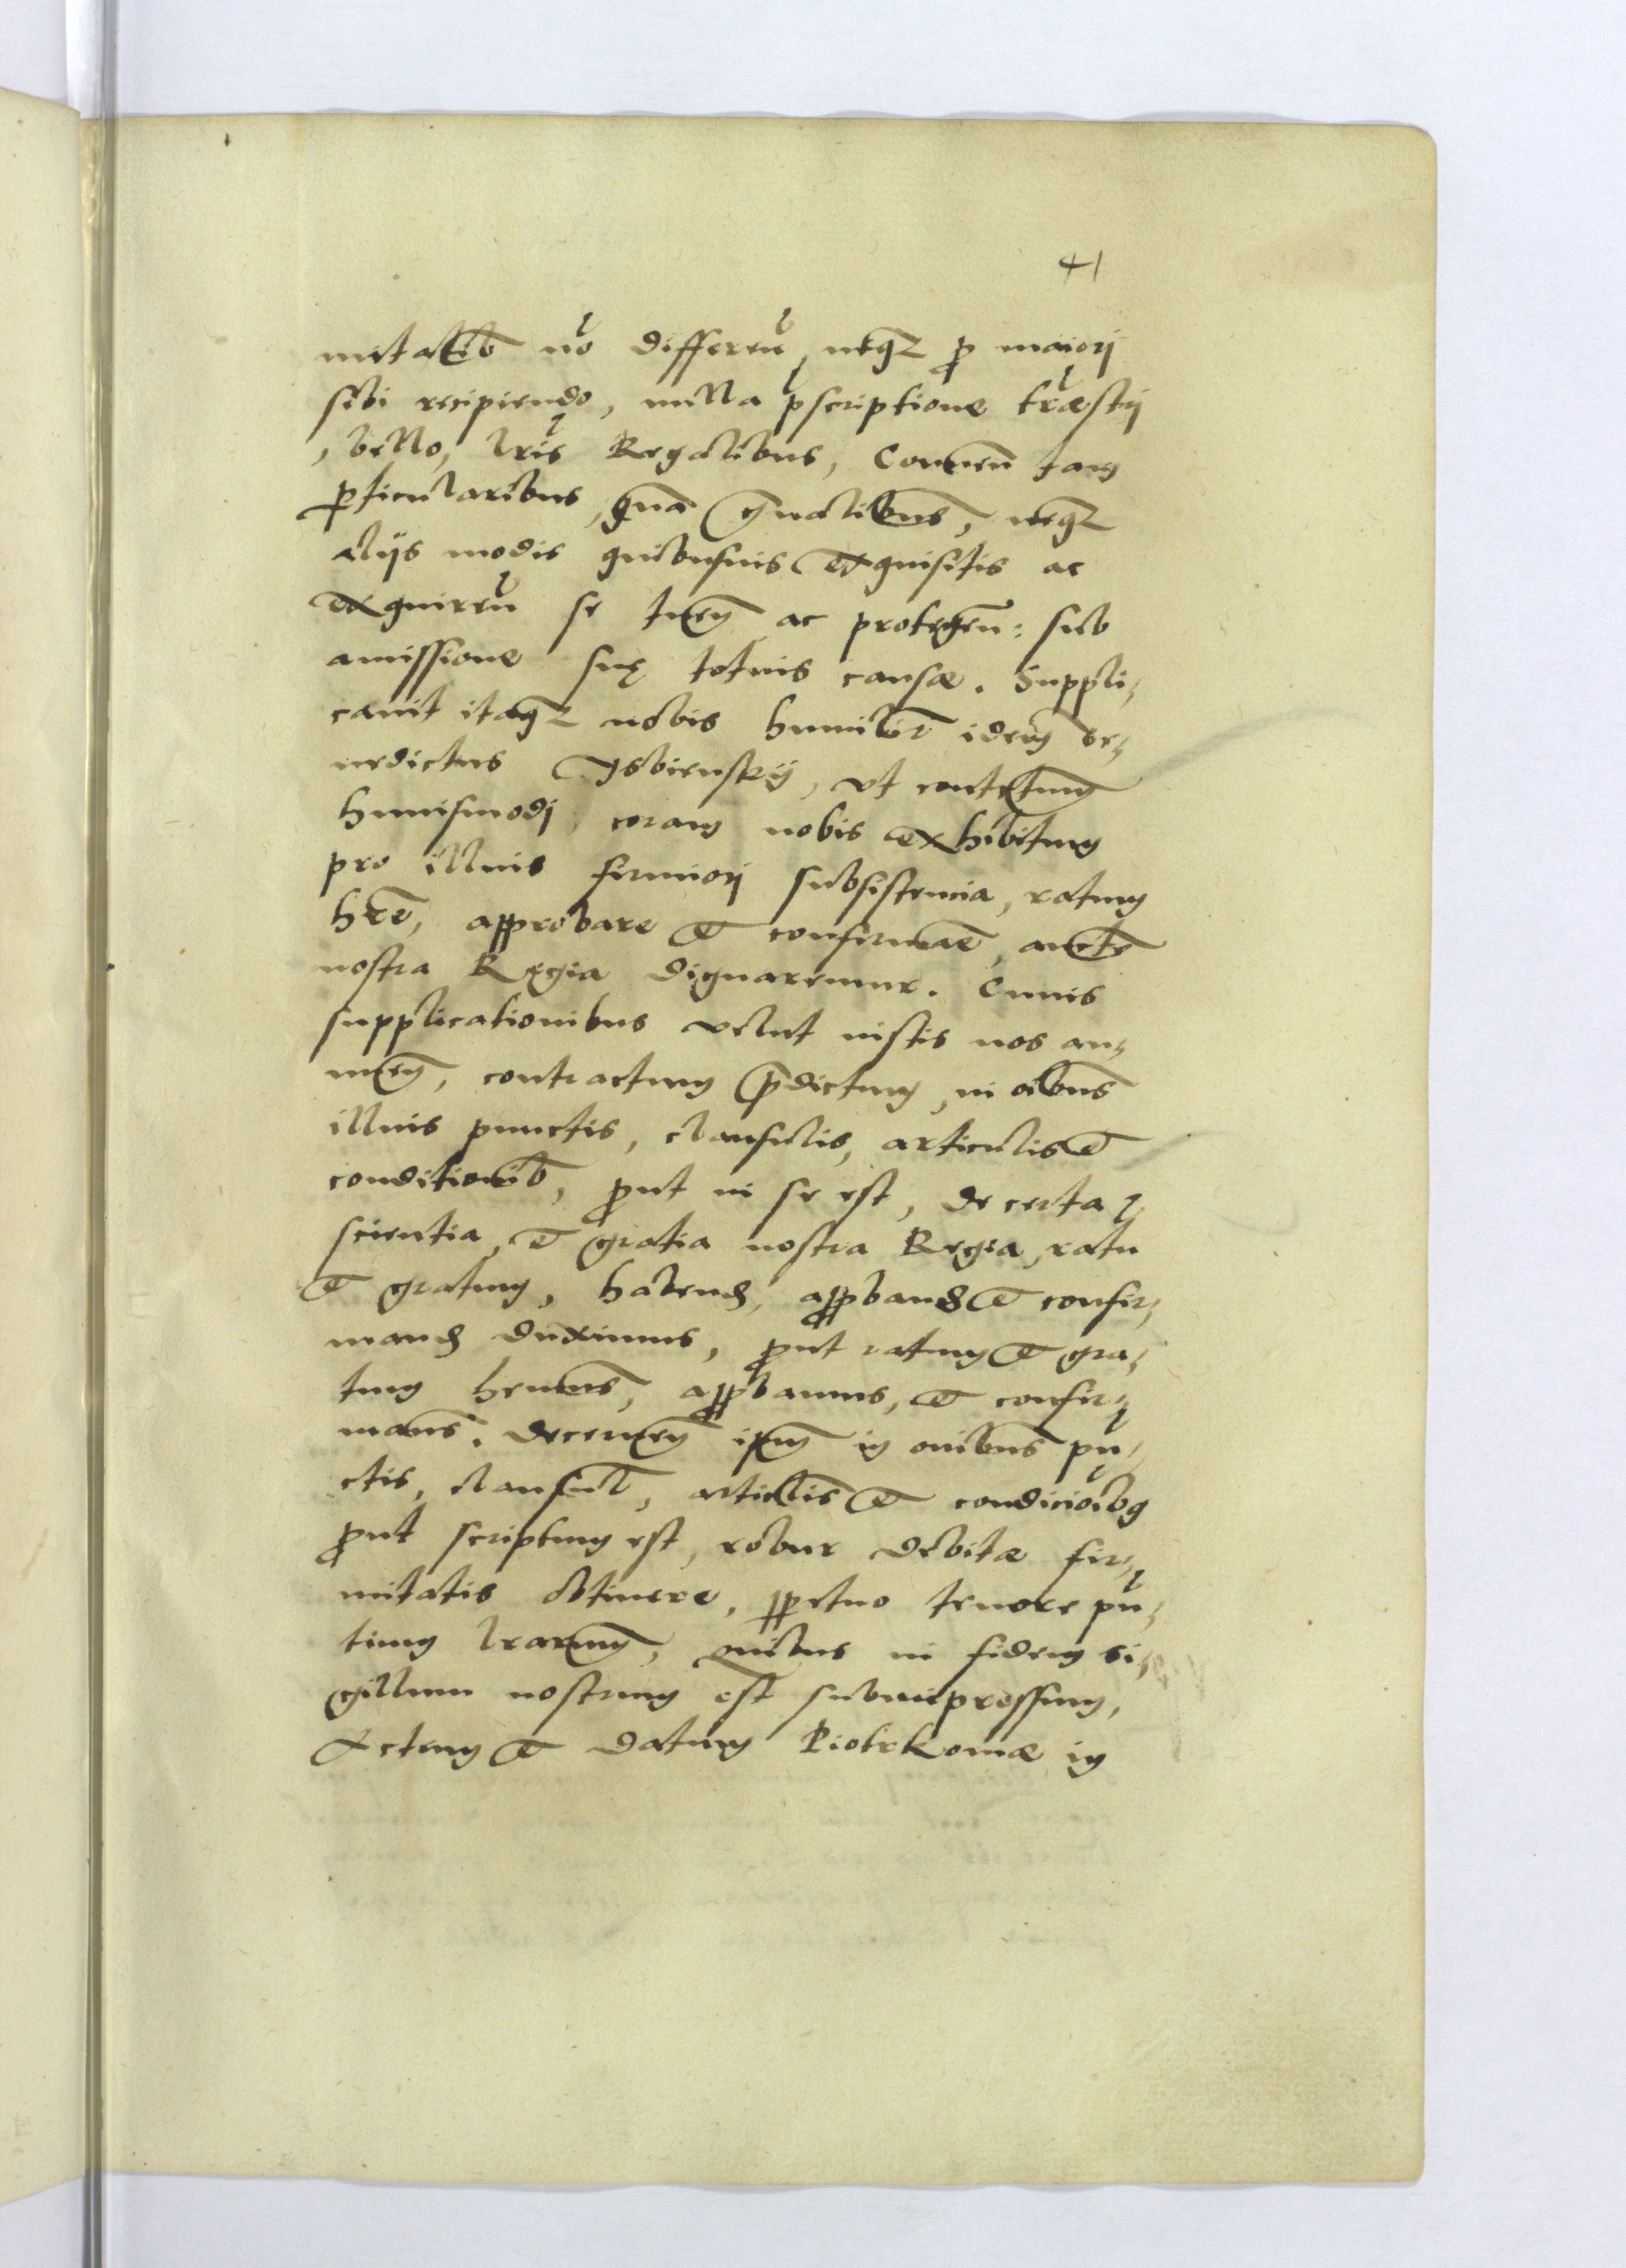 41
mitatib nō differen, neqз p maiorj
sibi recipiendo, nulla pscriptione træstrij
, bello, lris Regalibus, Conven tam
pticularibus, quā gnalibus, neqз
alijs modis quibusuis exquisitis ac
exquiren se tuen ac protegen: sub
amissione suę totius causæ. Suppli,
cauit itaqз nobis humilit idem be,
nedictus Isbiensky, vt contctum
huiusmodj, coram nobis exhibitum
pro illius firmiorj subsistencia, ratum
hre, approbare et confirmare, aucte
nostra Regia dignaremur. Cuius
supplicationibus velut iustis nos an,
nuen, contractum prdictum, in oibus
illius punctis, clausulis, articulis et
conditionib, put in se est, de certa
scientia, et gratia nostra Regia, ratu
et gratum, habend, appband et confir,
mand duximus, put ratum et gra,
tum hemus, appbamus, et confir,
mams. decernen ipm in omibus pū,
ctis, clausul, articlis et condicioibg
put scriptum est, robur debitæ fir,
mitatis obtinere, ppetuo tenore pn,
tium lrarum, quibus in fidem si,
gillum nostrum est subimpressum,
Actum et Datum Piotrkouiæ in